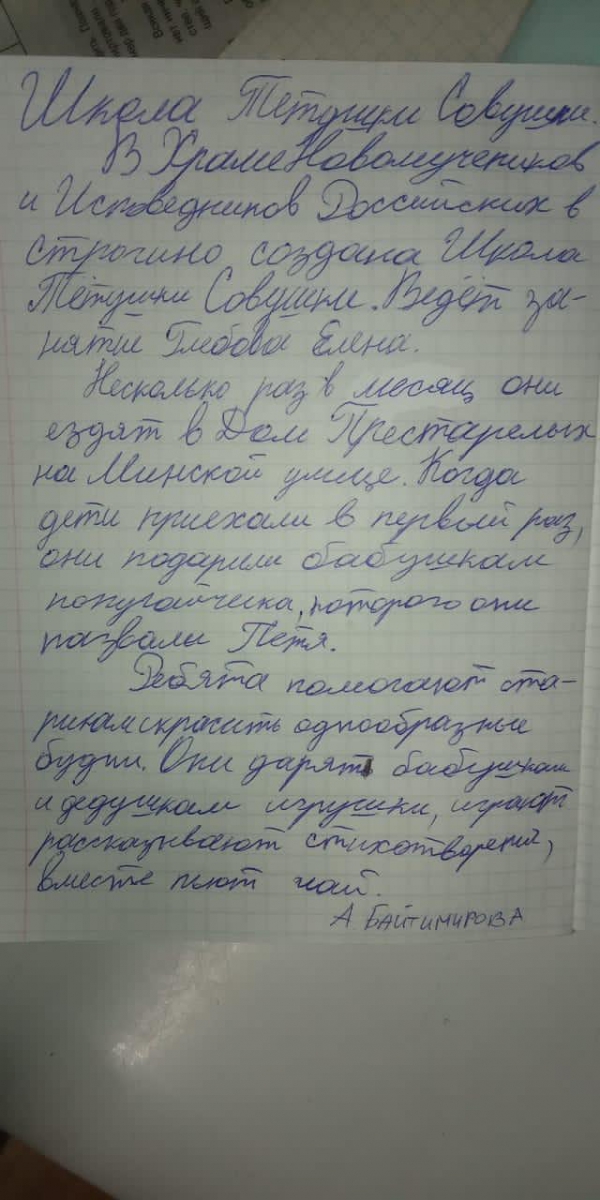 Школа Тётушки Совушки.
В Храме Новомучеников
и Исповедников Российских в
строгино создана Школа
Тётушки Совушки. Ведёт за-
нятия Глебова Елена.
Несколько раз в месяц они
ездят в Дом Престарелых
на Минской улице. Когда
дети приехали в первый раз,
они подарили бабушкам
попугайчика, которого они
назвали Петя.
Ребята помогают ста-
рикам скрасить однообразные
будни. Они дарят бабушкам
и дедушкам игрушки, играют
рассказывают стихотворения,
вместе пьют чай.
А БАЙТИМИРОВА